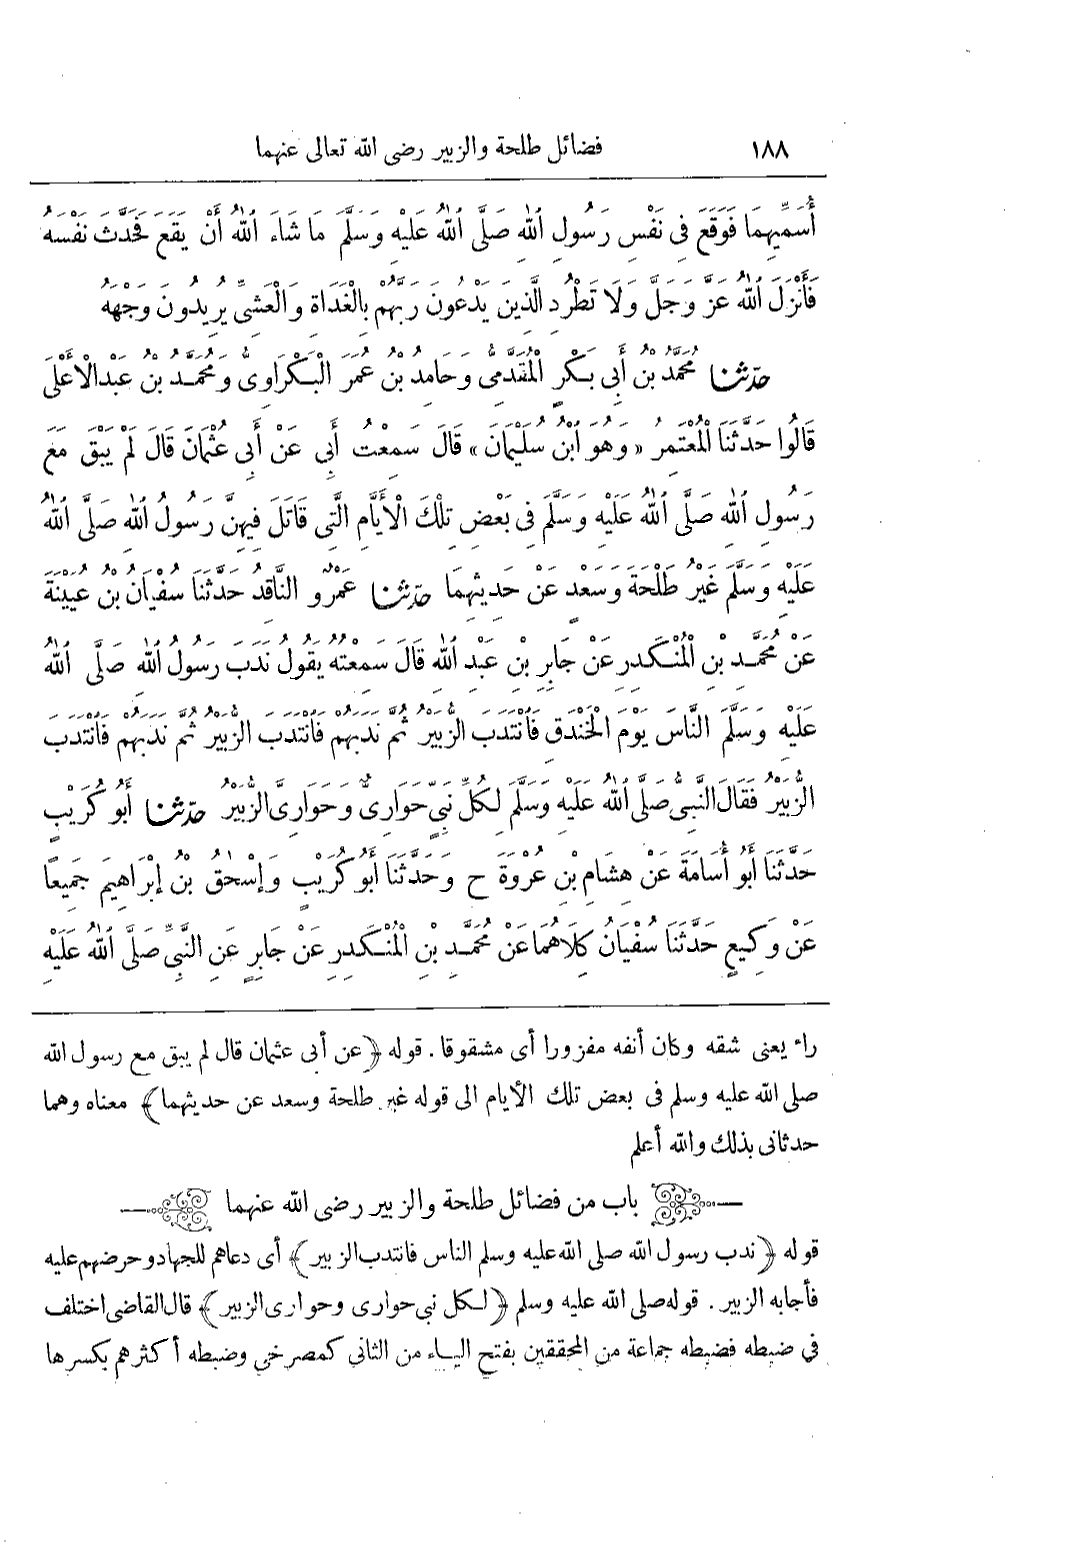 ١٨٨ فضائل طلحة والزبير رضى الله تعالى عنهما
أُسَمِّيهِمَا فَوَقَعَ فِى نَفْسِ رَسُولِ اللهِ صَلَّى اللهُ عَلَيْهِ وَسَلَّمَ مَا شَاءَ اللهُ أَنْ يَقَعَ فَحَدَّثَ نَفْسَهُ
فَأَنْزَلَ اللهُ عَزَّ وَجَلَّ وَلَا تَطْرُدِ الَّذِينَ يَدْعُونَ رَبَّهُمْ بِالْغَدَاةِ وَالْعَشِىِّ يُرِيدُونَ وَجْهَهُ
حدّثنا مُحَمَّدُ بْنُ أَبِى بَكْرٍ الْمُقَدَّمِىُّ وَحَامِدُ بْنُ عُمَرَ الْبَكْرَاوِىُّ وَمُحَمَّدُ بْنُ عَبْدِ الْأَعْلَى
قَالُوا حَدَّثَنَا الْمُعْتَمِرُ «وَهُوَ ابْنُ سُلَيْمَانَ» قَالَ سَمِعْتُ أَبِى عَنْ أَبِى عُثْمَانَ قَالَ لَمْ يَبْقَ مَعَ
رَسُولِ اللهِ صَلَّى اللهُ عَلَيْهِ وَسَلَّمَ فِى بَعْضِ تِلْكَ الْأَيَّامِ الَّتِى قَاتَلَ فِيهِنَّ رَسُولُ اللهِ صَلَّى اللهُ
عَلَيْهِ وَسَلَّمَ غَيْرُ طَلْحَةَ وَسَعْدٍ عَنْ حَدِيثِهِمَا حدّثنا عَمْرٌو النَّاقِدُ حَدَّثَنَا سُفْيَانُ بْنُ عُيَيْنَةَ
عَنْ مُحَمَّدِ بْنِ الْمُنْكَدِرِ عَنْ جَابِرِ بْنِ عَبْدِ اللهِ قَالَ سَمِعْتُهُ يَقُولُ نَدَبَ رَسُولُ اللهِ صَلَّى اللهُ
عَلَيْهِ وَسَلَّمَ النَّاسَ يَوْمَ الْخَنْدَقِ فَانْتَدَبَ الزُّبَيْرُ ثُمَّ نَدَبَهُمْ فَانْتَدَبَ الزُّبَيْرُ ثُمَّ نَدَبَهُمْ فَانْتَدَبَ
الزُّبَيْرُ فَقَالَ النَّبِىُّ صَلَّى اللهُ عَلَيْهِ وَسَلَّمَ لِكُلِّ نَبِىٍّ حَوَارِىٌّ وَحَوَارِىَّ الزُّبَيْرُ حدّثنا أَبُو كُرَيْبٍ
حَدَّثَنَا أَبُو أُسَامَةَ عَنْ هِشَامِ بْنِ عُرْوَةَ ح وَحَدَّثَنَا أَبُو كُرَيْبٍ وَإِسْحٰقُ بْنُ إِبْرَاهِيمَ جَمِيعًا
عَنْ وَكِيعٍ حَدَّثَنَا سُفْيَانُ كِلَاهُمَا عَنْ مُحَمَّدِ بْنِ الْمُنْكَدِرِ عَنْ جَابِرٍ عَنِ النَّبِىِّ صَلَّى اللهُ عَلَيْهِ
راء يعنى شقه وكان أنفه مفزورا أى مشقوقا. قوله ﴿عن أبى عثمان قال لم يبق مع رسول الله
صلى الله عليه وسلم فى بعض تلك الأيام الى قوله غير طلحة وسعد عن حديثهما﴾ معناه وهما
حدثانى بذلك والله أعلم
باب من فضائل طلحة والزبير رضى الله عنهما
قوله ﴿ندب رسول الله صلى الله عليه وسلم الناس فانتدب الزبير﴾ أى دعاهم للجهاد وحرضهم عليه
فأجابه الزبير. قوله صلى الله عليه وسلم ﴿لكل نبى حوارى وحوارى الزبير﴾ قال القاضى اختلف
في ضبطه فضبطه جماعة من المحققين بفتح الياء من الثاني كمصرخي وضبطه أكثرهم بكسرها